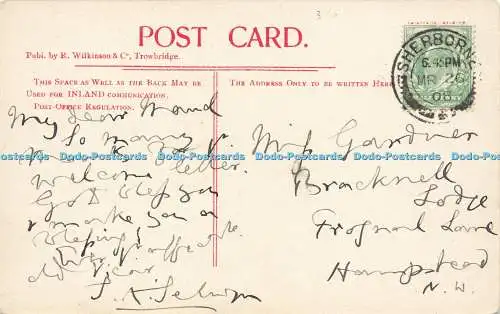 POST CARD.
Publ. by R. Wilkinson & Co, Trowbridge.
THIS SPACE AS WELL AS THE BACK MAY BE
USED FOR INLAND COMMUNICATION.
POST-OFFICE REGULATION.
THE ADDRESS ONLY TO BE WRITTEN HERE
SHERBORNE
6.45PM
MR 26
06
My dear Maud
So many
welcome letter.
God bless you
& make you a
blessing!
old Vicar
Miss Gardner
Bracknell
Lodge
Frognal Lane
Hampstead
N.W.
Dodo-Postcards Dodo-Postcards Dodo-Postcards